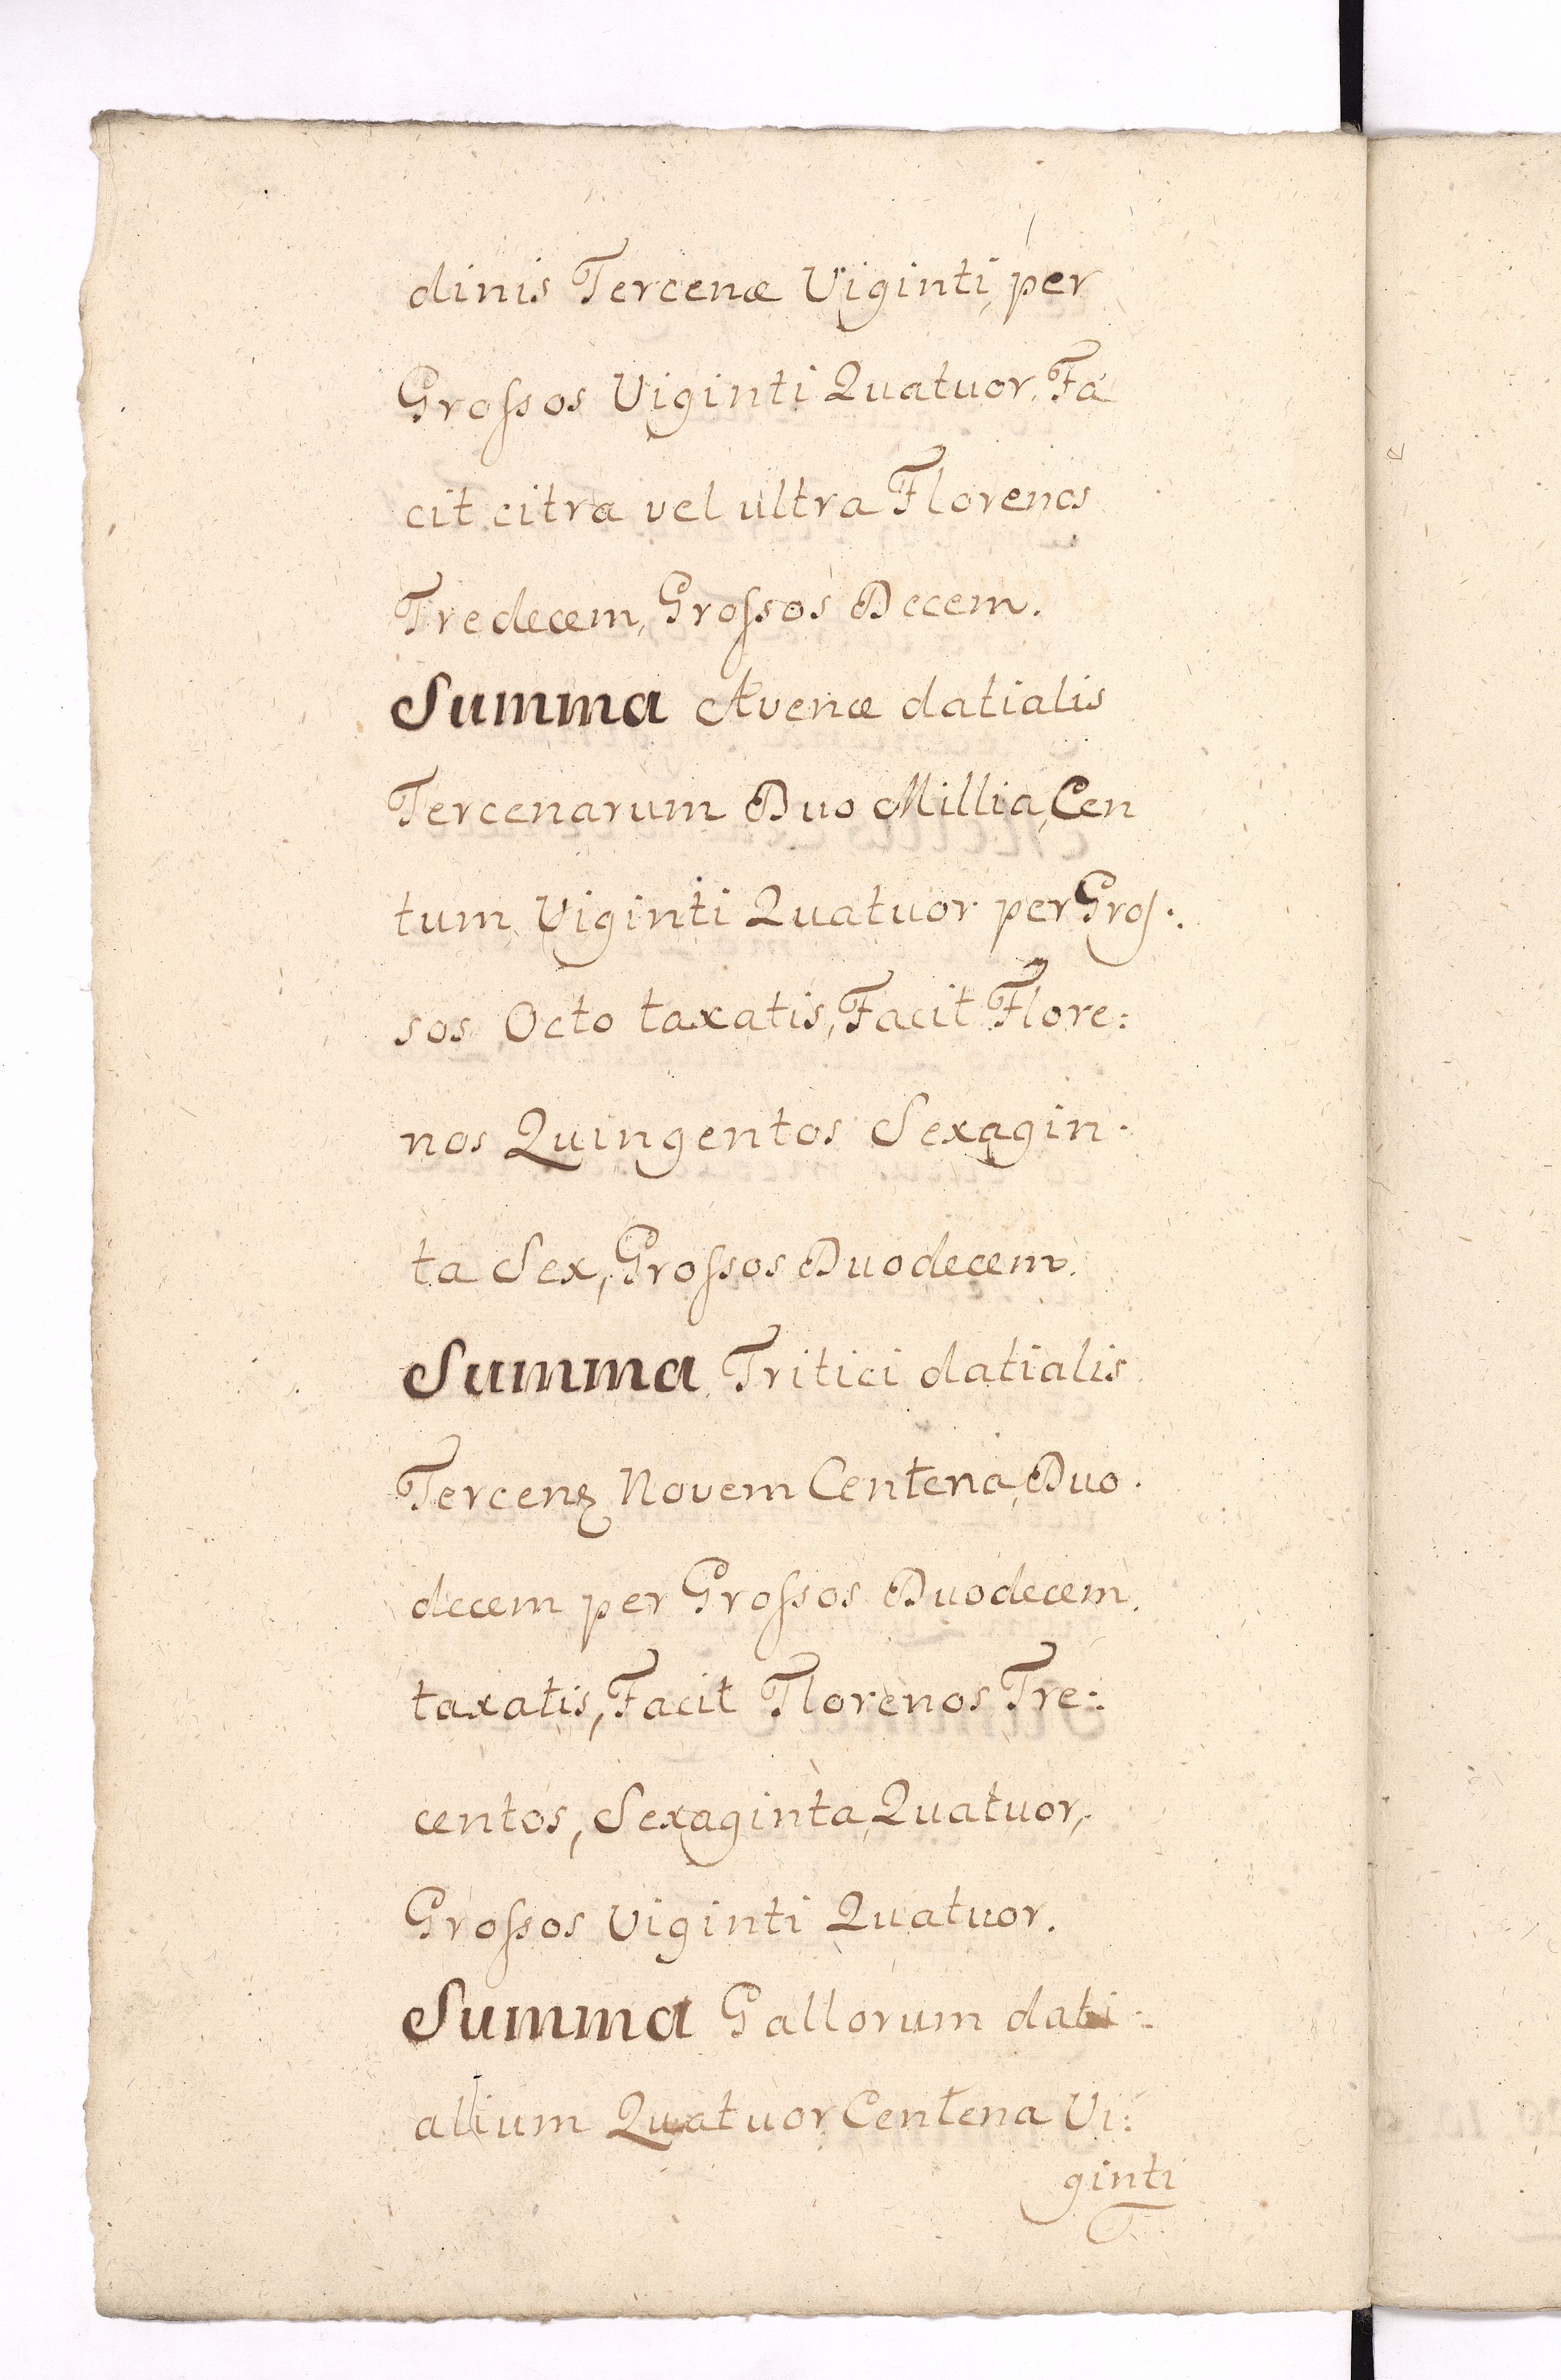 dinis Tercenæ Viginti, per
Groſsos Viginti Quatuor, Fa
cit citra vel ultra Florenos
Tredecem, Groſsos Decem.
Summa Avenæ datialis
Tercenarum Duo Millia, Cen
tum, Viginti Quatuor per Groſ:
sos Octo taxatis, Facit Flore:
nos Quingentos Sexagin:
ta Sex, Groſsos Duodecem.
Summa Tritici datialis
Tercenę Novem Centena, Duo:
decem per Groſsos Duodecem
taxatis, Facit Florenos Tre:
centos, Sexaginta, Quatuor,
Groſsos Viginti Quatuor.
Summa Gallorum dati:
alium Quatuor Centena Vi:
ginti